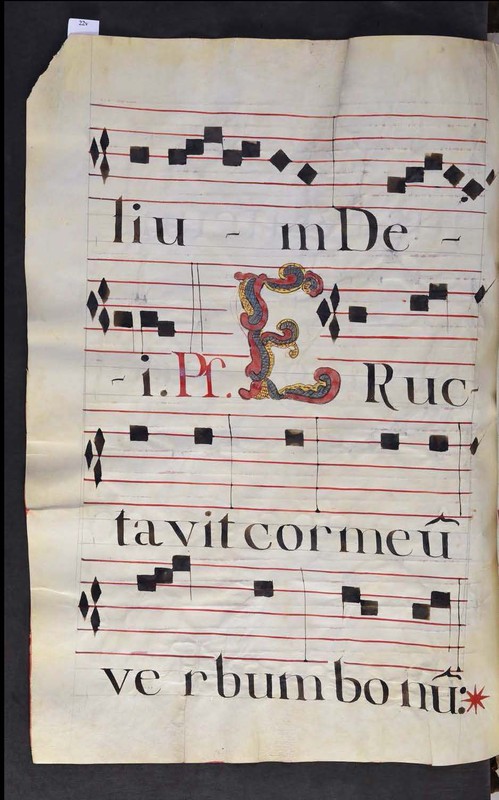 22v
liu - m De -
- i. Ps. E Ruc-
tavit cor meū
ve rbum bo nū:*